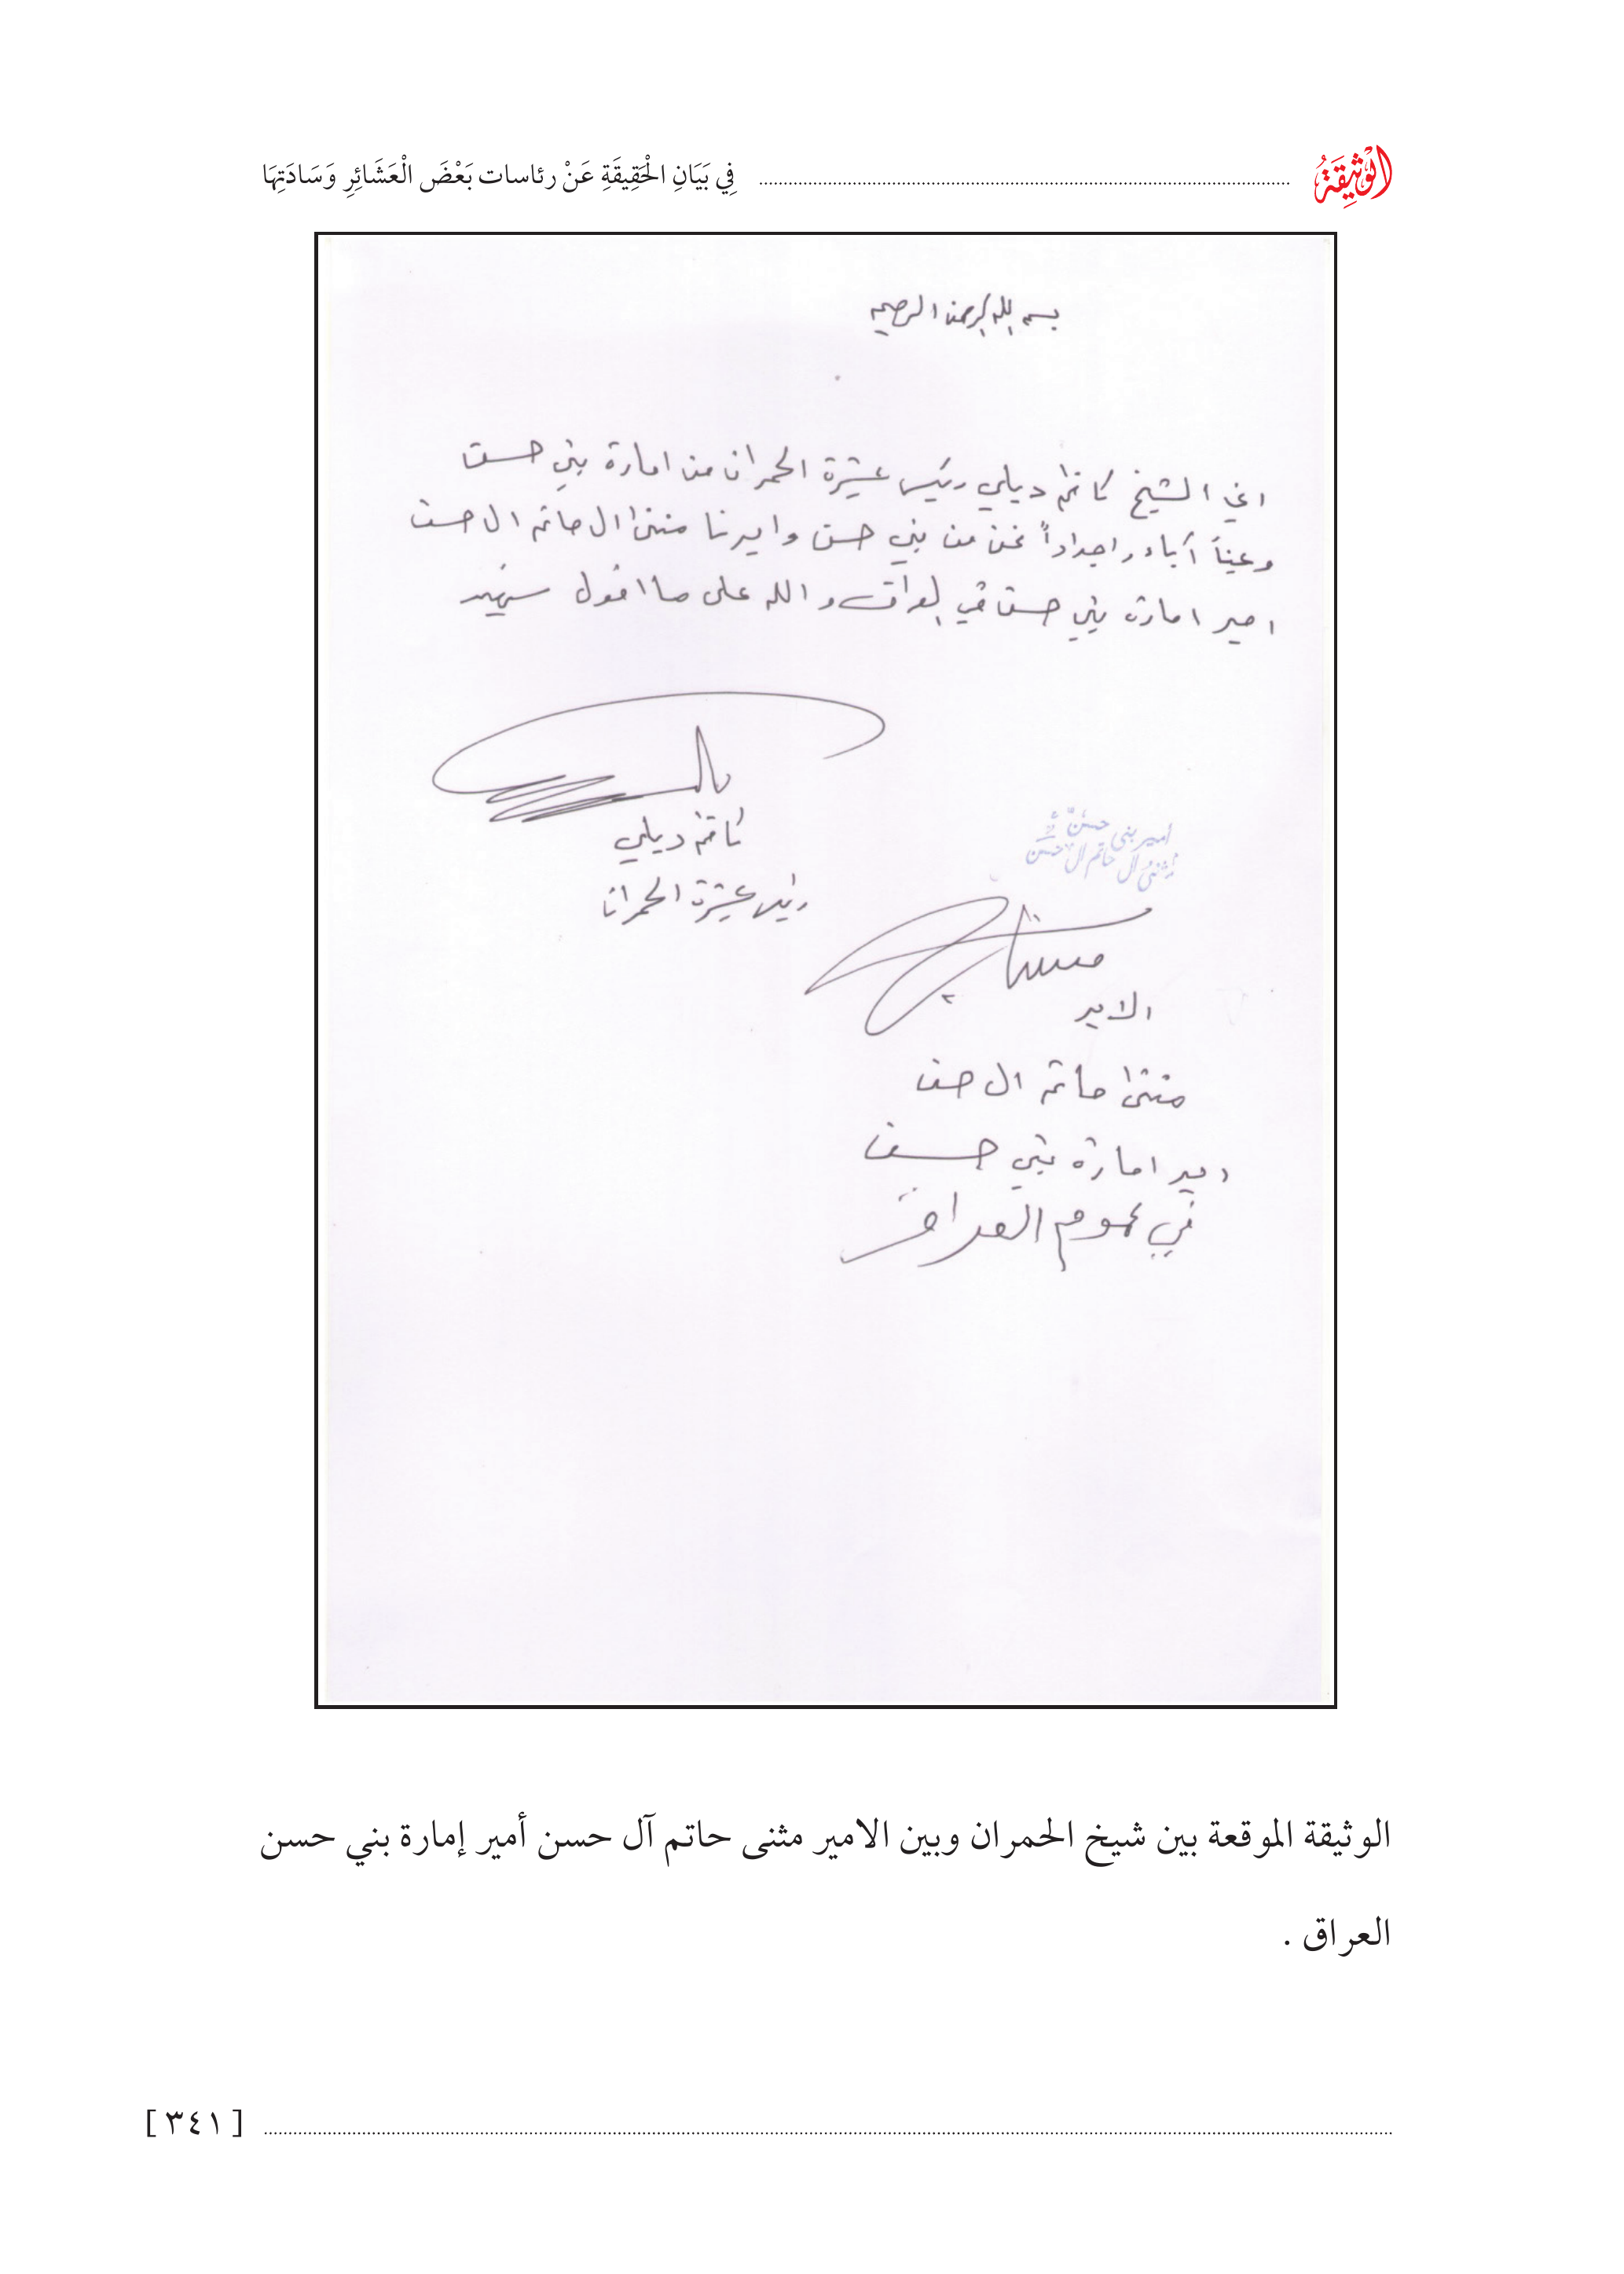 الْوَثِيقَةُ فِي بَيَانِ الْحَقِيقَةِ عَنْ رئاسات بَعْضَ الْعَشَائِرِ وَسَادَتِهَا
بسم الله الرحمن الرحيم
اني الشيخ كاظم ديلي رئيس عشيرة الحمران من امارة بني حسن
آباء واجداداً نحن من بني حسن واميرنا مثنى ال حاتم ال حسن
امير امارة بني حسن في العراق والله على ما اقول شهيد
كاظم ديلي
رئيس عشيرة الحمران
أمير بني حسن
مثنى ال حاتم ال حسن
الامير
مثنى حاتم ال حسن
امير امارة بني حسن
في عموم العراق
الوثيقة الموقعة بين شيخ الحمران وبين الامير مثنى حاتم آل حسن أمير إمارة بني حسن
العراق .
[ ٣٤١ ]